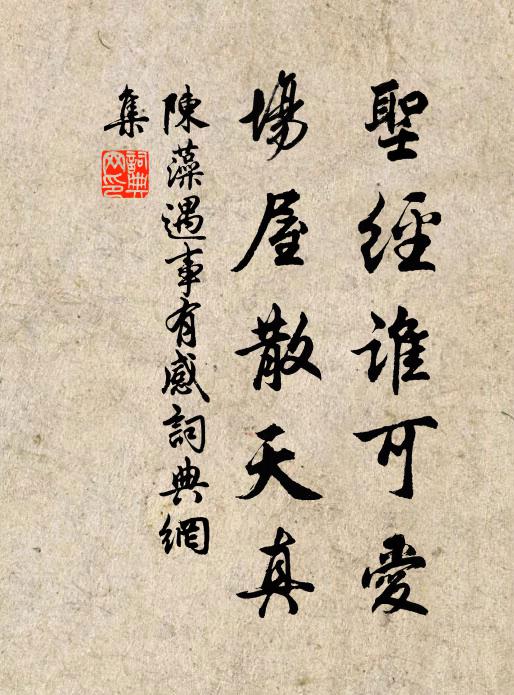 聖經誰可愛
場屋散天真
陳藻遇事有感詞典網
集
詞典
网印